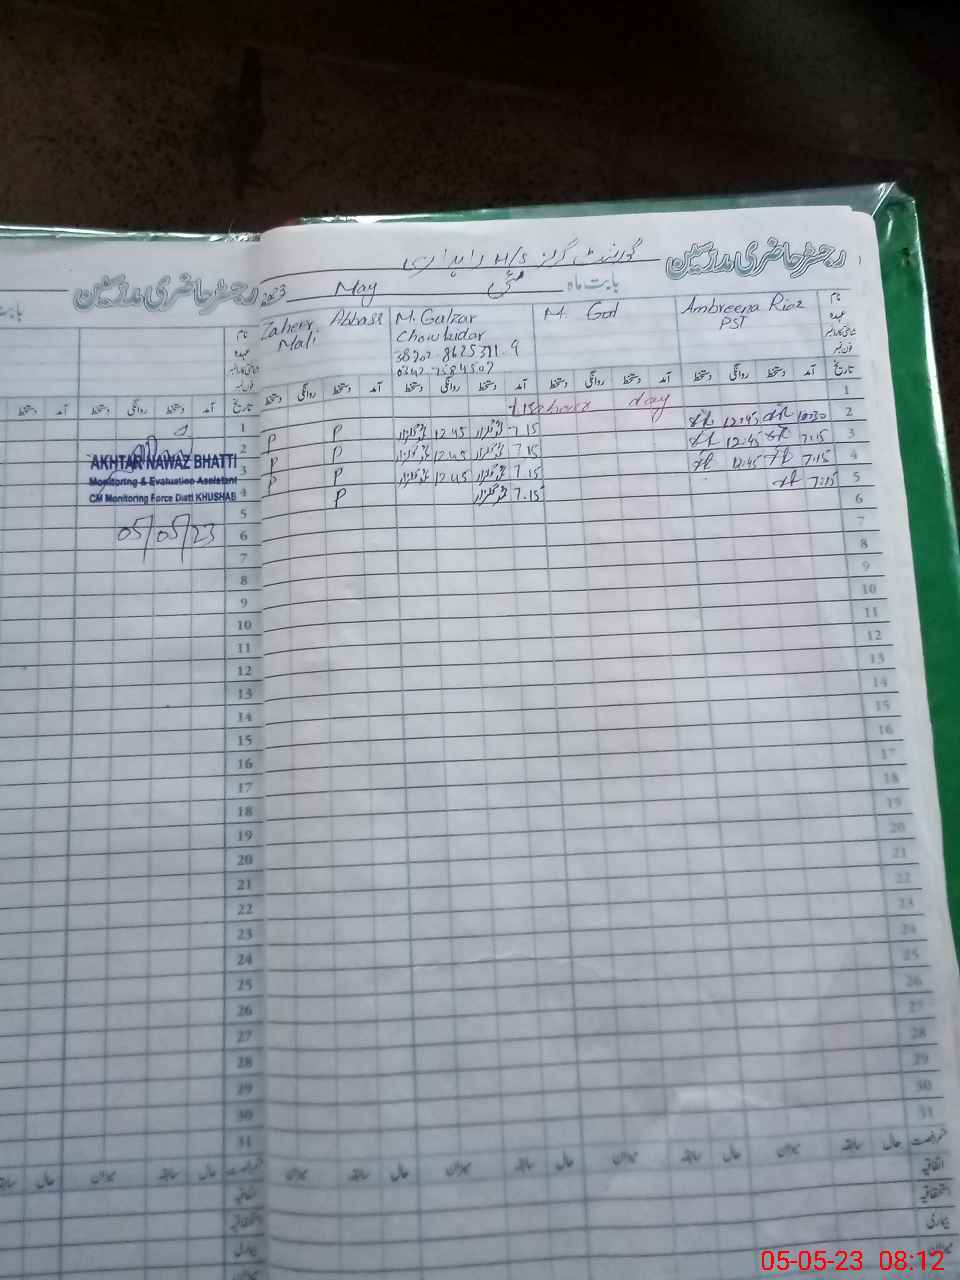 رجسٹر حاضری مدرسین
گورنمنٹ گرلز H/S
بابت ماہ مئی May 2023
نام
عہدہ
شناختی کارڈ نمبر
فون نمبر
Ambreena Riaz
PST
M. Gul
M. Gulzar
Chowkidar
38202-8625371-9
Zaheer Abbass
Mali
تاریخ آمد دستخط روانگی دستخط آمد دستخط روانگی دستخط آمد دستخط روانگی دستخط آمد روانگی دستخط
1 day
2 10:30 12:45 7.15 گلزار 12.45 گلزار P P
3 7.15 12:45 7.15 گلزار 12.45 گلزار P P
4 7.15 12:45 7.15 گلزار 12.45 گلزار P P
5 7.15 7.15 گلزار P
6
7
8
9
10
11
12
13
14
15
16
17
18
19
20
21
22
23
24
25
26
27
28
29
30
31
حال سابقہ میزان حال سابقہ میزان حال سابقہ میزان
اتفاقیہ
استحقاقیہ
بیماری
میزان
رجسٹر حاضری مدرسین
نام
عہدہ
شناختی کارڈ نمبر
فون نمبر
تاریخ آمد دستخط روانگی دستخط آمد
1
2
3
4
5
6
7
8
9
10
11
12
13
14
15
16
17
18
19
20
21
22
23
24
25
26
27
28
29
30
31
حال سابقہ میزان حال سابقہ
اتفاقیہ
استحقاقیہ
بیماری
AKHTAR NAWAZ BHATTI
Monitoring & Evaluation Assistant
CM Monitoring Force Distt KHUSHAB
05/05/23
05-05-23 08:12